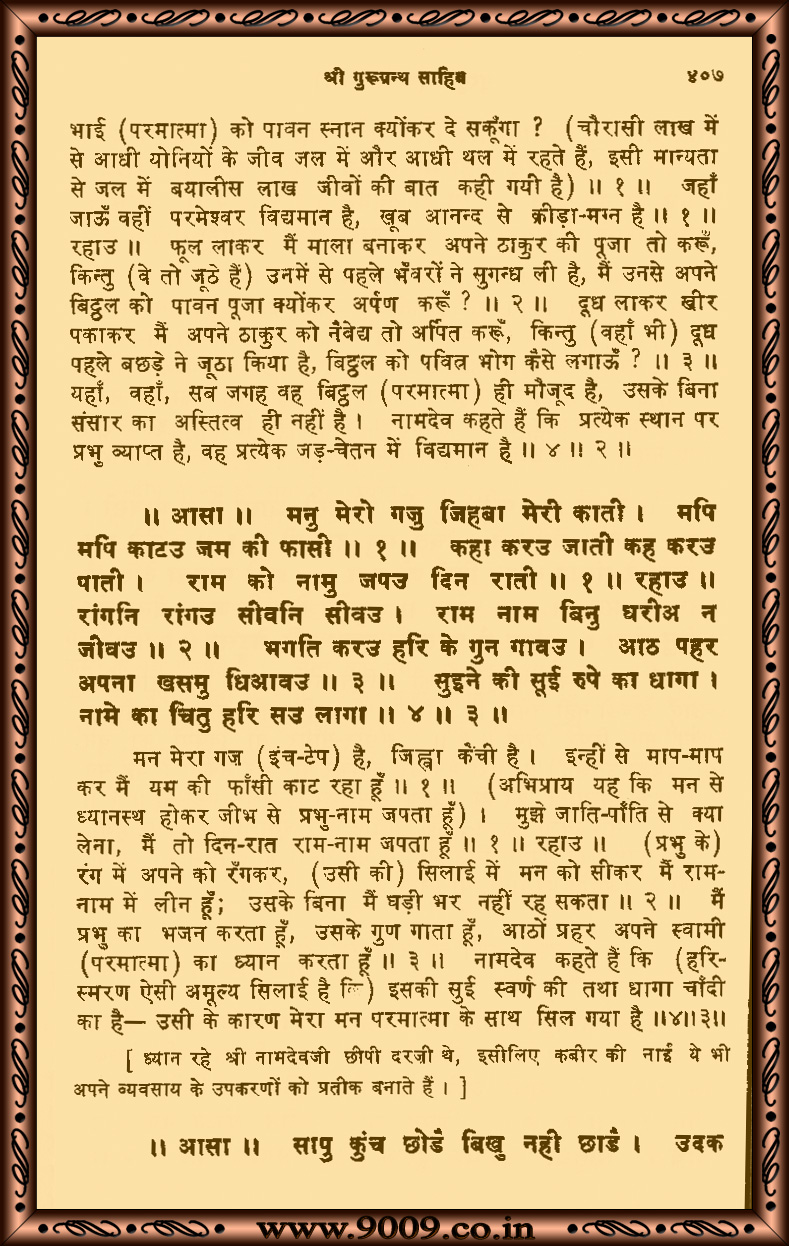 श्री गुरुग्रन्थ साहिब ४०७
भाई (परमात्मा) को पावन स्नान क्योंकर दे सकूँगा ? (चौरासी लाख में
से आधी योनियों के जीव जल में और आधी थल में रहते हैं, इसी मान्यता
से जल में बयालीस लाख जीवों की बात कही गयी है) ॥ १ ॥ जहाँ
जाऊँ वहीं परमेश्वर विद्यमान है, खूब आनन्द से क्रीड़ा-मग्न है ॥ १ ॥
रहाउ ॥ फूल लाकर मैं माला बनाकर अपने ठाकुर की पूजा तो करूँ,
किन्तु (वे तो जूठे हैं) उनमें से पहले भँवरों ने सुगन्ध ली है, मैं उनसे अपने
बिट्ठल को पावन पूजा क्योंकर अर्पण करूँ ? ॥ २ ॥ दूध लाकर खीर
पकाकर मैं अपने ठाकुर को नैवेद्य तो अर्पित करूँ, किन्तु (वहाँ भी) दूध
पहले बछड़े ने जूठा किया है, बिट्ठल को पवित्र भोग कैसे लगाऊँ ? ॥ ३ ॥
यहाँ, वहाँ, सब जगह वह बिट्ठल (परमात्मा) ही मौजूद है, उसके बिना
संसार का अस्तित्व ही नहीं है । नामदेव कहते हैं कि प्रत्येक स्थान पर
प्रभु व्याप्त है, वह प्रत्येक जड़-चेतन में विद्यमान है ॥ ४ ॥ २ ॥
॥ आसा ॥ मनु मेरो गजु जिहबा मेरी काती । मपि
मपि काटउ जम की फासी ॥ १ ॥ कहा करउ जाती कह करउ
पाती । राम को नामु जपउ दिन राती ॥ १ ॥ रहाउ ॥
रांगनि रांगउ सीवनि सीवउ । राम नाम बिनु घरीअ न
जीवउ ॥ २ ॥ भगति करउ हरि के गुन गावउ । आठ पहर
अपना खसमु धिआवउ ॥ ३ ॥ सुइने की सूई रुपे का धागा ।
नामे का चितु हरि सउ लागा ॥ ४ ॥ ३ ॥
मन मेरा गज़ (इंच-टेप) है, जिह्वा कैंची है । इन्हीं से माप-माप
कर मैं यम की फाँसी काट रहा हूँ ॥ १ ॥ (अभिप्राय यह कि मन से
ध्यानस्थ होकर जीभ से प्रभु-नाम जपता हूँ) । मुझे जाति-पाँति से क्या
लेना, मैं तो दिन-रात राम-नाम जपता हूँ ॥ १ ॥ रहाउ ॥ (प्रभु के)
रंग में अपने को रँगकर, (उसी की) सिलाई में मन को सीकर मैं राम-
नाम में लीन हूँ; उसके बिना मैं घड़ी भर नहीं रह सकता ॥ २ ॥ मैं
प्रभु का भजन करता हूँ, उसके गुण गाता हूँ, आठों प्रहर अपने स्वामी
(परमात्मा) का ध्यान करता हूँ ॥ ३ ॥ नामदेव कहते हैं कि (हरि-
स्मरण ऐसी अमूल्य सिलाई है कि) इसकी सुई स्वर्ण की तथा धागा चाँदी
का है— उसी के कारण मेरा मन परमात्मा के साथ सिल गया है ॥४॥३॥
[ ध्यान रहे श्री नामदेवजी छीपी दरजी थे, इसीलिए कबीर की नाईं ये भी
अपने व्यवसाय के उपकरणों को प्रतीक बनाते हैं । ]
॥ आसा ॥ सापु कुंच छोडै बिखु नही छाडै । उदक
www.9009.co.in